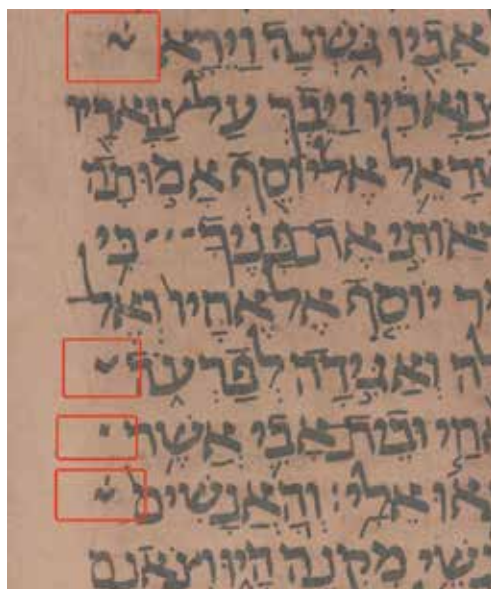 אָבִיו גֹּשְׁנָה וַיֵּרָא
צַוָּארָיו וַיֵּבְךְּ עַל צַוָּארָיו
שְׂרָאֵל אֶל יוֹסֵף אָמוּתָה
אוֹתִי אֶת פָּנֶיךָ כִּי
ר יוֹסֵף אֶל אֶחָיו וְאֶל
לֶה וְאַגִּידָה לְפַרְעֹה
אַחַי וּבֵית אָבִי אֲשֶׁר
אוּ אֵלָי׃ וְהָאֲנָשִׁים
נְשֵׁי מִקְנֶה הָיוּ וְצֹאנָם